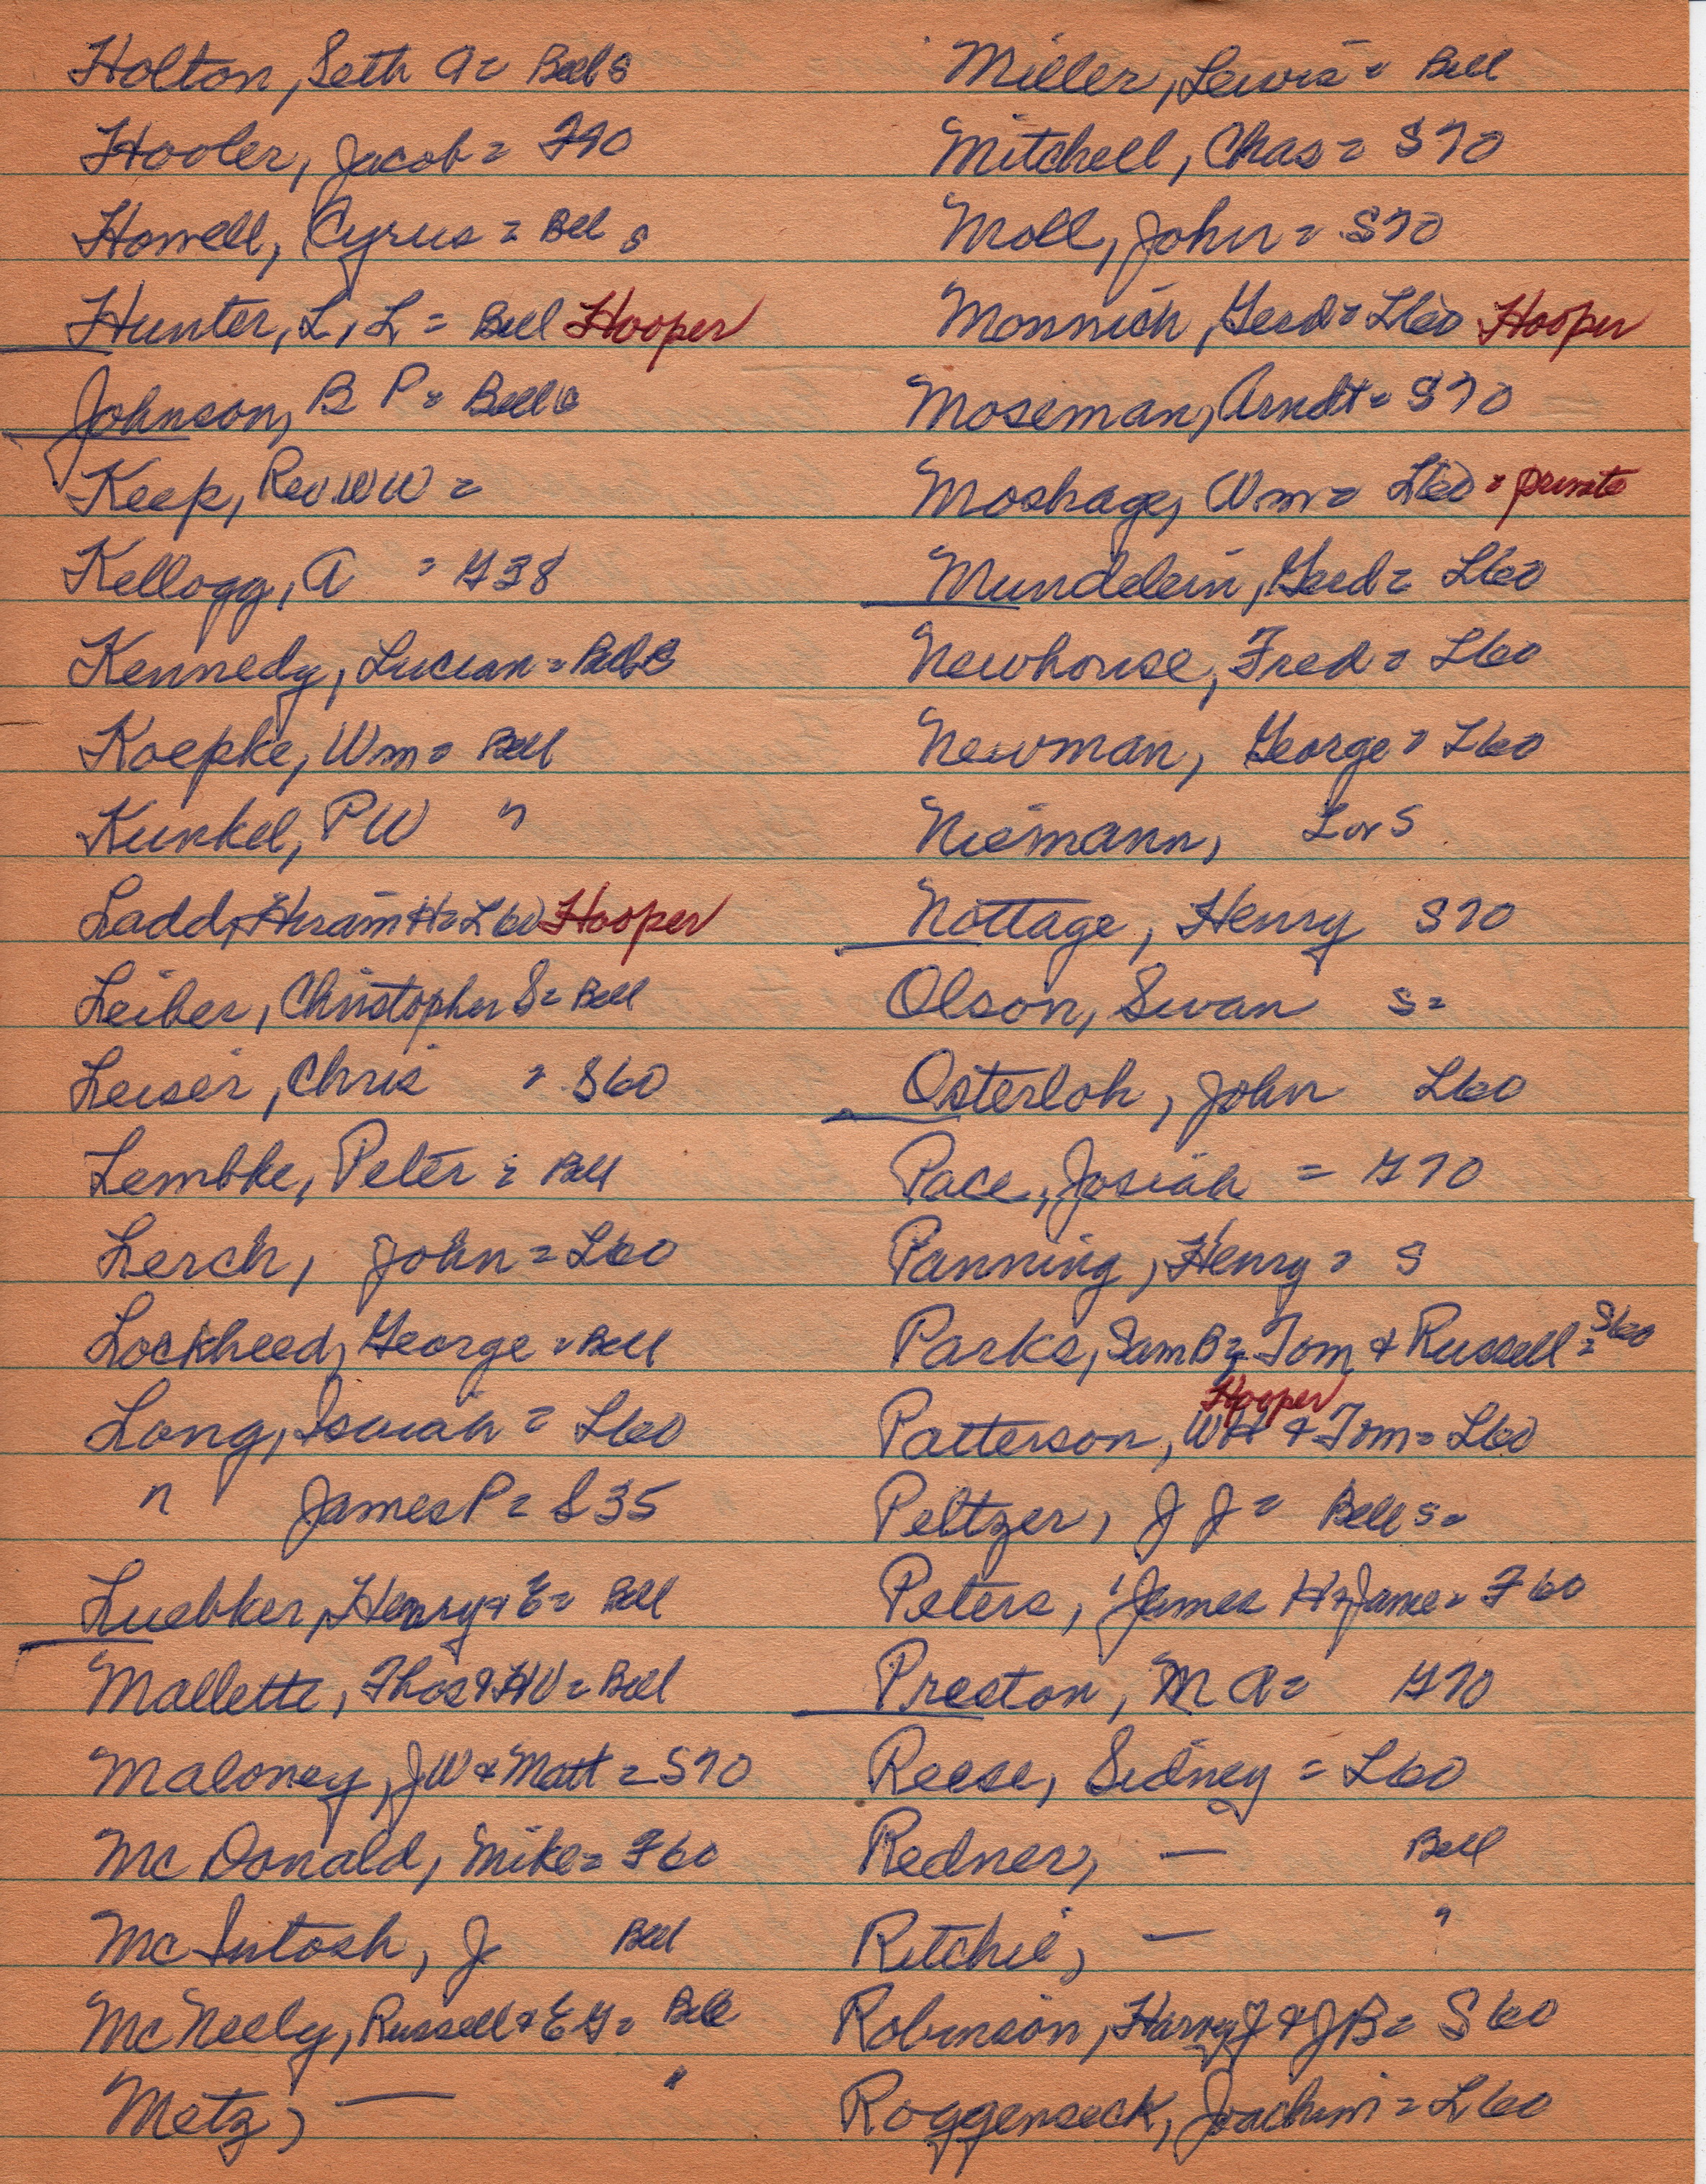 Holton, Seth A = Bell s
Hooler, Jacob = F70
Howell, Cyrus = Bell s
Hunter, L, L = Bell Hooper
Johnson, B P = Bell s
Keep, Rev WW =
Kellogg, A = G38
Kennedy, Lucian = Bell S
Koepke, Wm = Bell
Kunkel, PW "
Ladd, Hiram H = L60 Hooper
Leiber, Christopher S = Bell
Leiser, Chris = S60
Lembke, Peter = Bell
Lerch, John = L60
Lockheed, George = Bell
Long, Isaiah = L60
" James P = S35
Luebker, Henry & E = Bell
Mallette, Thos & HW = Bell
Maloney, JW & Matt = S70
Mc Donald, Mike = F60
Mc Intosh, J Bell
Mc Neely, Russell & E G = Bell
Metz, — "
Miller, Lewis = Bell
Mitchell, Chas = S70
Moll, John = S70
Monnich, Gerd = L60 Hooper
Moseman, Arndt = S70
Moshage, Wm = L60 = private
Mundelein, Gerd = L60
Newhouse, Fred = L60
Newman, George = L60
Niemann, L or S
Nottage, Henry S70
Olson, Swan S =
Osterloh, John L60
Pace, Josiah = G70
Panning, Henry = S
Parks, Sam B = Tom & Russell = S60
Hooper
Patterson, WH & Tom = L60
Peltzer, J J = Bell s =
Peters, James H = Jame = F60
Preston, M A = G70
Reese, Sidney = L60
Redner, — Bell
Ritchie, — "
Robinson, Harvey J & JB = S60
Roggenseck, Joachim = L60